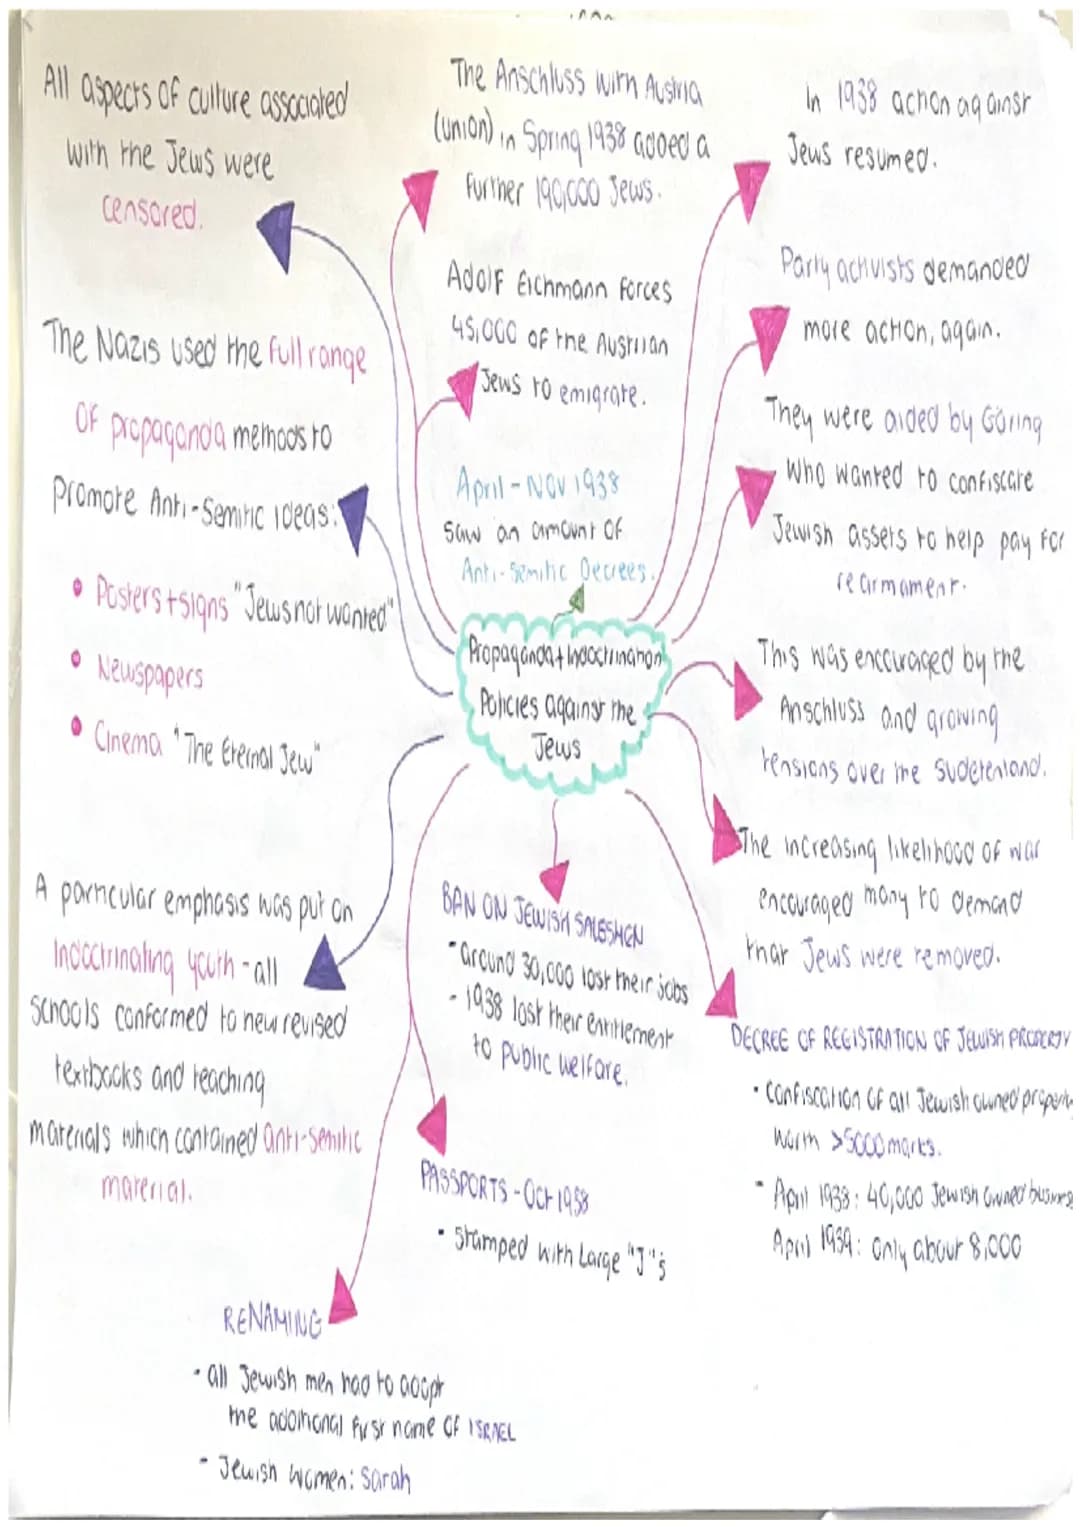 All aspects of culture associated
with the Jews were
censored.
The Nazis used the full range
of propaganda methods to
promote Anti-Semitic ideas:
• Posters + signs "Jews not wanted"
• Newspapers
• Cinema "The Eternal Jew"
A particular emphasis was put on
Indoctrinating youth - all
schools conformed to new revised
textbooks and teaching
materials which contained anti-semitic
material.
The Anschluss with Austria
(union) in Spring 1938 added a
further 190,000 Jews.
Adolf Eichmann forces
45,000 of the Austrian
Jews to emigrate.
April - Nov 1938
saw an amount of
Anti-Semitic Decrees.
Propaganda + Indoctrination
Policies against the
Jews
In 1938 action against
Jews resumed.
Party activists demanded
more action, again.
They were aided by Göring
who wanted to confiscate
Jewish assets to help pay for
rearmament.
This was encouraged by the
Anschluss and growing
tensions over the Sudetenland.
The increasing likelihood of war
encouraged many to demand
that Jews were removed.
DECREE OF REGISTRATION OF JEWISH PROPERTY
• Confiscation of all Jewish owned property
worth >5000 marks.
- April 1938: 40,000 Jewish owned business
April 1939: Only about 8,000
BAN ON JEWISH SALESMEN
- around 30,000 lost their jobs
- 1938 lost their entitlement
to public welfare.
PASSPORTS - Oct 1938
• Stamped with Large "J"s
RENAMING
• all Jewish men had to adopt
the additional first name of ISRAEL
- Jewish women: Sarah